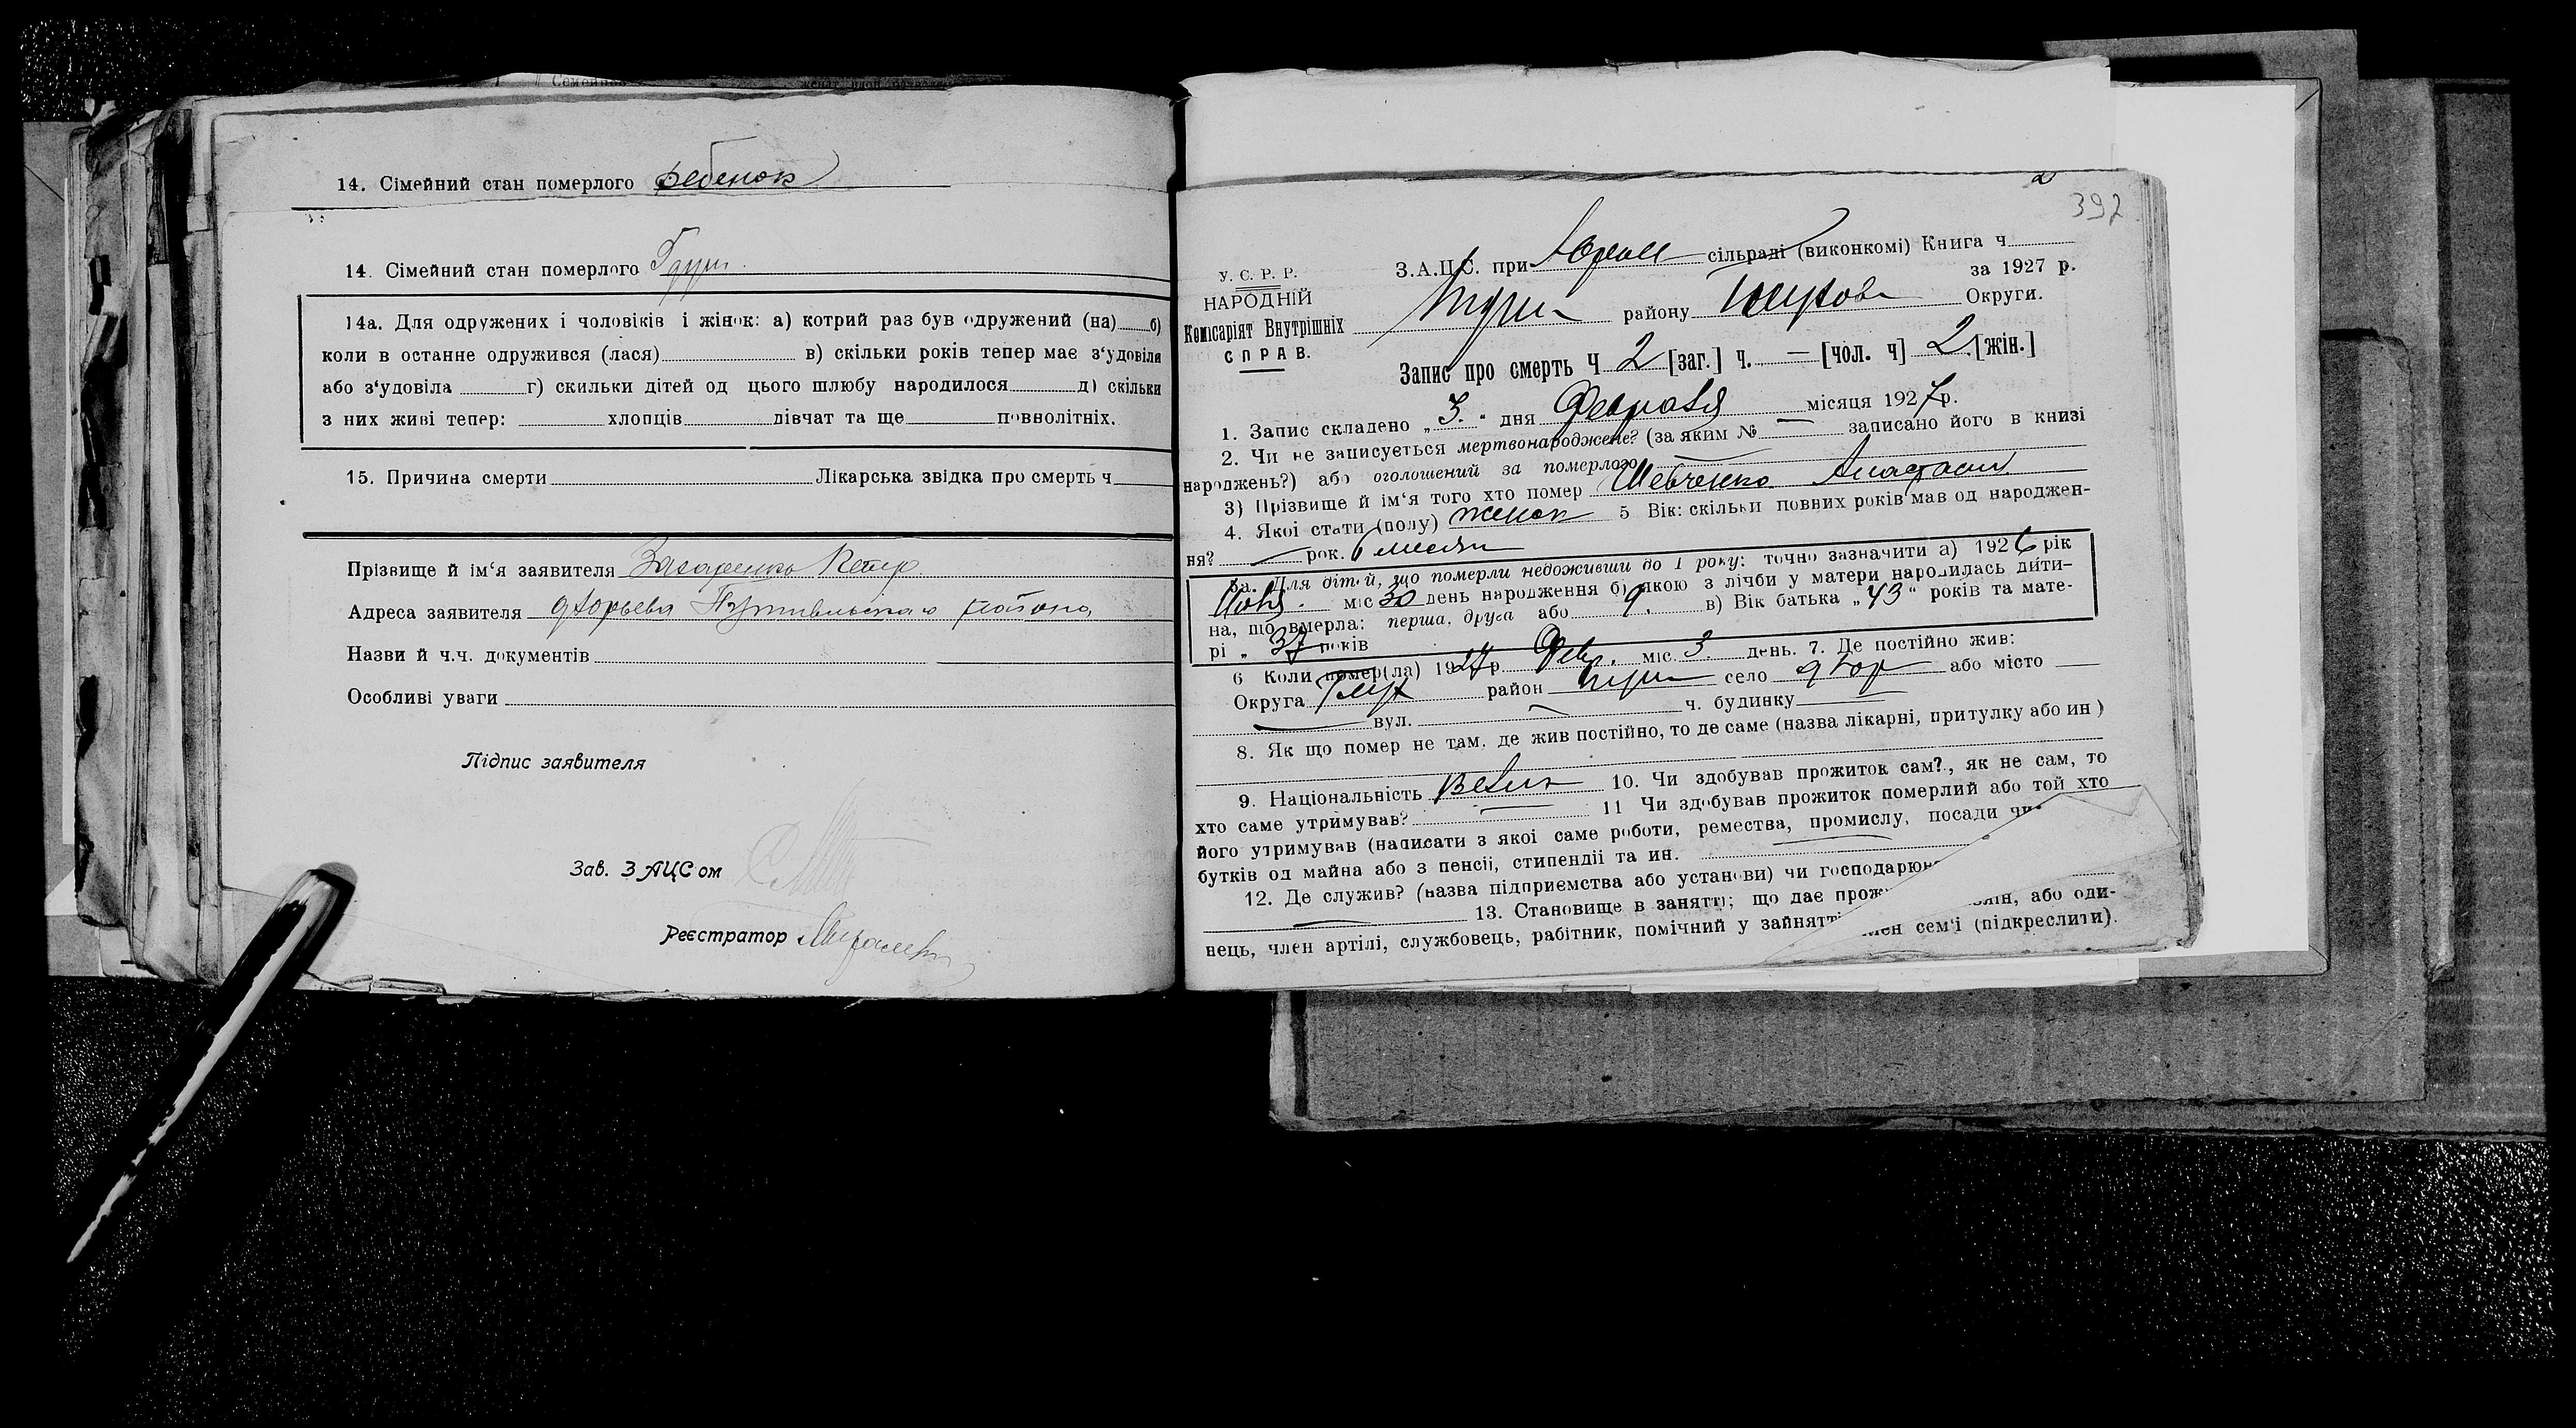 14. Сімейний стан померлого ребенок
14. Сімейний стан померлого
14а. Для одружених і чоловіків і жінок: а) котрий раз був одружений (на) б)
коли в останне одружився (лася) в) скільки років тепер має з'удовіла
або з'удовіла г) скильки дітей од цього шлюбу народилося д) скільки
з них живі тепер: хлопців дівчат та ще повнолітніх.
15. Причина смерти Лікарська звідка про смерть ч
Прізвище й ім'я заявителя Захаренко Петр
Адреса заявителя Юрьева Путивльского района
Назви й ч.ч. документів
Особливі уваги
Підпис заявителя
Зав. ЗАЦСом
Реєстратор
392
У. С. Р. Р.
НАРОДНІЙ
Комісаріят Внутрішніх
СПРАВ.
З.А.Ц.С. при сільраді (виконкомі) Книга ч
за 1927 р.
району Округи.
Запис про смерть Ч 2 [заг.] ч. — [чол. ч] 2 [жін.]
1. Запис складено „3." дня Февраля місяця 1927 р.
2. Чи не записується мертвонароджене? (за яким № — записано його в книзі
народжень?) або оголошений за померлого
3) Прізвище й ім'я того хто помер Шевченко Анастасия
4. Якої стати (полу) женск 5 Вік: скільки повних років мав од народжен-
ня? — рок. 6 месяц
5а. Для дітей, що померли недоживши до 1 року: точно зазначити а) 1926 рік
міс 30 день народження б) якою з лічби у матери народилась дити-
на, що вмерла: перша, друга або 9, в) Вік батька „43" років та мате-
рі „37 років
6 Коли помер(ла) 1927 р Февр. міс. 3 день. 7. Де постійно жив:
Округа Глух район село або місто —
— вул. ч. будинку —
8. Як що помер не там, де жив постійно, то де саме (назва лікарні, притулку або ин )
9. Національність 10. Чи здобував прожиток сам?, як не сам, то
хто саме утримував? — 11 Чи здобував прожиток померлий або той хто
його утримував (написати з якої саме роботи, ремества, промислу, посади чи
бутків од майна або з пенсії, стипендії та ин.
12. Де служив? (назва підприємства або установи) чи господарюв
— 13. Становище в занятті; що дає прож або оди-
нець, член артілі, службовець, рабітник, помічний у зайнятті сем'ї (підкреслити).